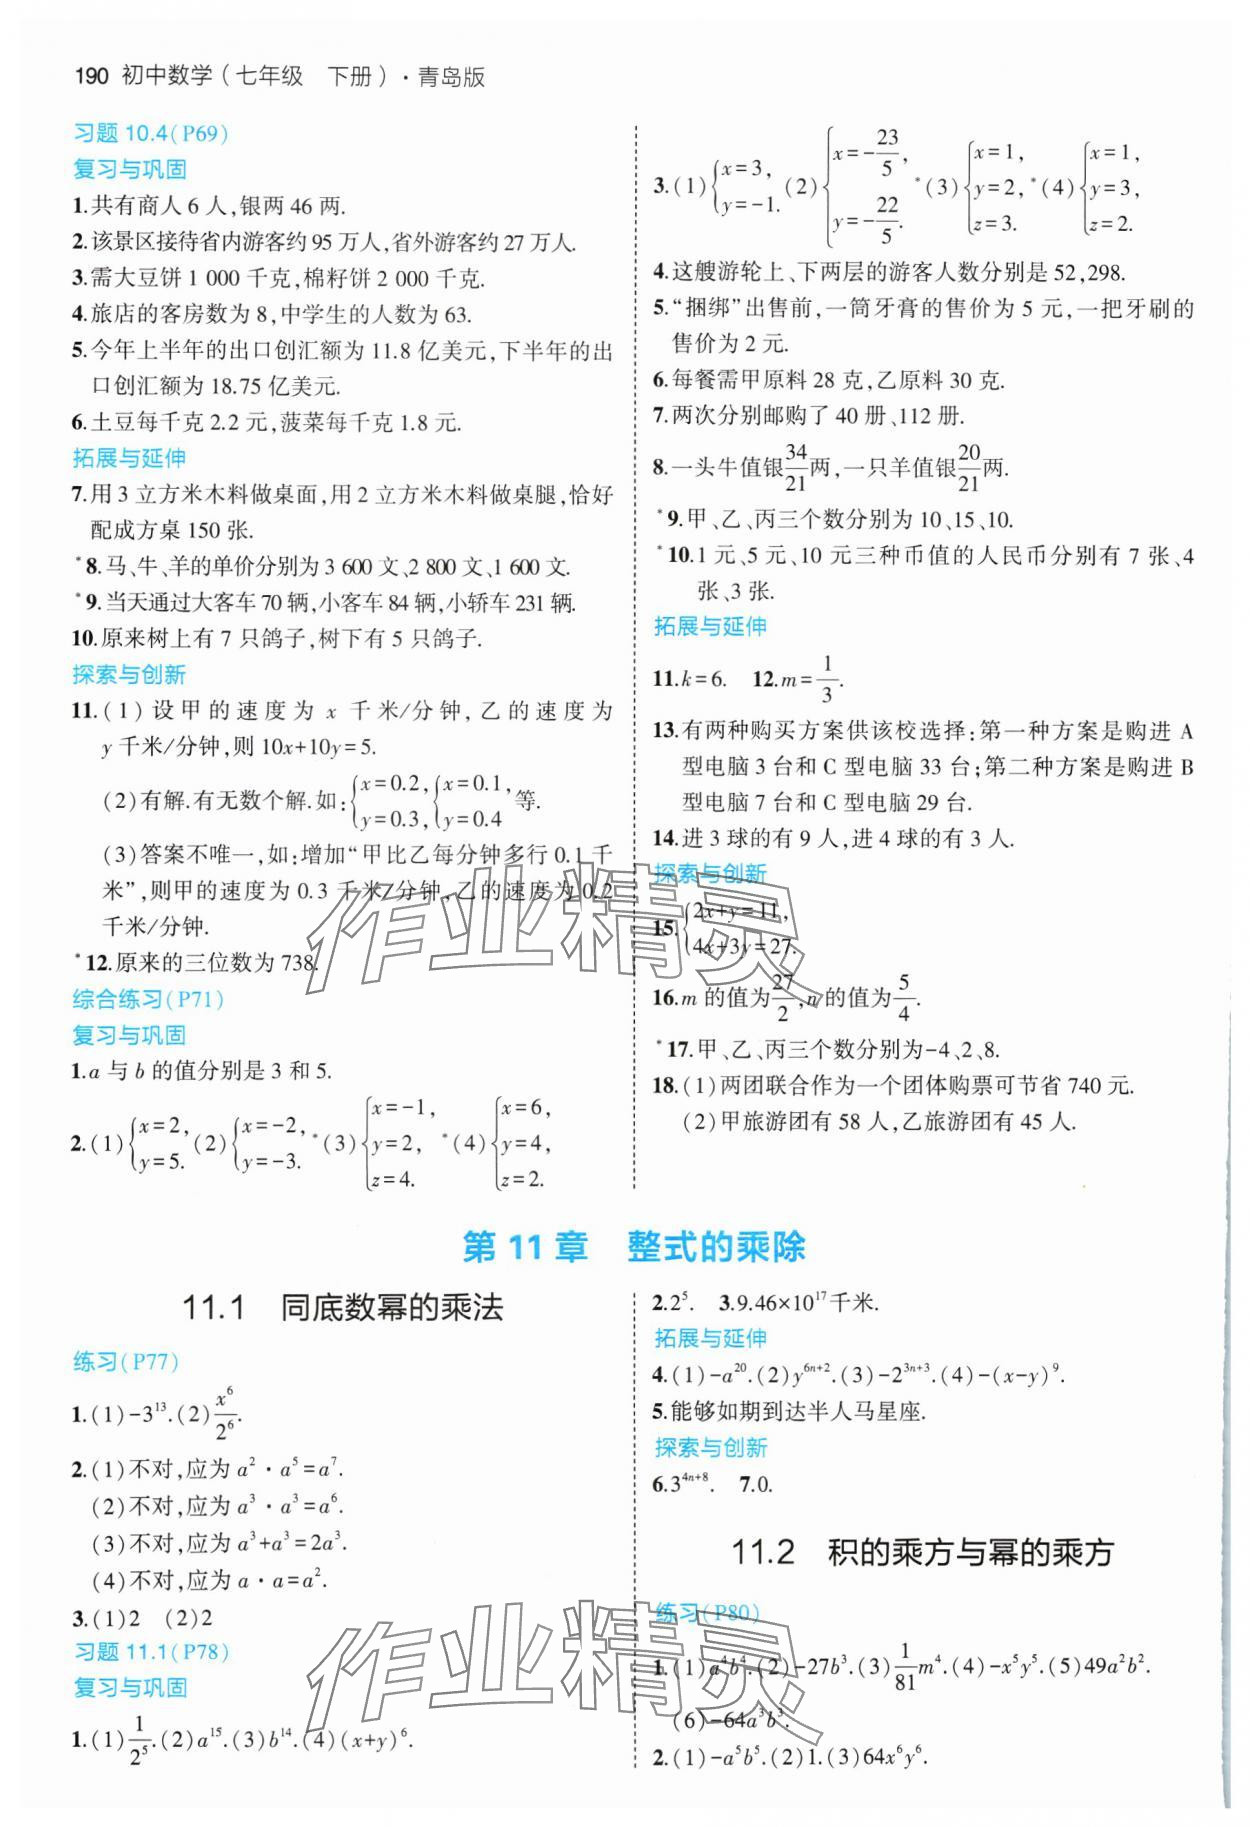 190 初中数学(七年级 下册)·青岛版
习题10.4(P69)
复习与巩固
1.共有商人6人,银两46两.
2.该景区接待省内游客约95万人,省外游客约27万人.
3.需大豆饼1 000千克,棉籽饼2 000千克.
4.旅店的客房数为8,中学生的人数为63.
5.今年上半年的出口创汇额为11.8亿美元,下半年的出
口创汇额为18.75亿美元.
6.土豆每千克2.2元,菠菜每千克1.8元.
拓展与延伸
7.用3立方米木料做桌面,用2立方米木料做桌腿,恰好
配成方桌150张.
*8.马、牛、羊的单价分别为3 600文、2 800文、1 600文.
*9.当天通过大客车70辆,小客车84辆,小轿车231辆.
10.原来树上有7只鸽子,树下有5只鸽子.
探索与创新
11.(1)设甲的速度为x千米/分钟,乙的速度为
y千米/分钟,则10x+10y=5.
(2)有解.有无数个解.如:{x=0.2, y=0.3, {x=0.1, y=0.4 等.
(3)答案不唯一,如:增加“甲比乙每分钟多行0.1千
米”,则甲的速度为0.3千米/分钟,乙的速度为0.2
千米/分钟.
*12.原来的三位数为738.
综合练习(P71)
复习与巩固
1.a与b的值分别是3和5.
2.(1){x=2, y=5. (2){x=-2, y=-3. *(3){x=-1, y=2, z=4. *(4){x=6, y=4, z=2.
3.(1){x=3, y=-1. (2){x=-23/5, y=-22/5. *(3){x=1, y=2, z=3. *(4){x=1, y=3, z=2.
4.这艘游轮上、下两层的游客人数分别是52,298.
5.“捆绑”出售前,一筒牙膏的售价为5元,一把牙刷的
售价为2元.
6.每餐需甲原料28克,乙原料30克.
7.两次分别邮购了40册、112册.
8.一头牛值银34/21两,一只羊值银20/21两.
*9.甲、乙、丙三个数分别为10、15、10.
*10.1元、5元、10元三种币值的人民币分别有7张、4
张、3张.
拓展与延伸
11.k=6. 12.m=1/3.
13.有两种购买方案供该校选择:第一种方案是购进A
型电脑3台和C型电脑33台;第二种方案是购进B
型电脑7台和C型电脑29台.
14.进3球的有9人,进4球的有3人.
探索与创新
15.{2x+y=11, 4x+3y=27.
16.m的值为27/2,n的值为5/4.
*17.甲、乙、丙三个数分别为-4、2、8.
18.(1)两团联合作为一个团体购票可节省740元.
(2)甲旅游团有58人,乙旅游团有45人.
第11章 整式的乘除
11.1 同底数幂的乘法
练习(P77)
1.(1)-3¹³.(2)x⁶/2⁶.
2.(1)不对,应为a²·a⁵=a⁷.
(2)不对,应为a³·a³=a⁶.
(3)不对,应为a³+a³=2a³.
(4)不对,应为a·a=a².
3.(1)2 (2)2
习题11.1(P78)
复习与巩固
1.(1)1/2⁵.(2)a¹⁵.(3)b¹⁴.(4)(x+y)⁶.
2.2⁵. 3.9.46×10¹⁷千米.
拓展与延伸
4.(1)-a²⁰.(2)y⁶ⁿ⁺².(3)-2³ⁿ⁺³.(4)-(x-y)⁹.
5.能够如期到达半人马星座.
探索与创新
6.3⁴ⁿ⁺⁸. 7.0.
11.2 积的乘方与幂的乘方
练习(P80)
1.(1)a⁴b⁴.(2)-27b³.(3)1/81m⁴.(4)-x⁵y⁵.(5)49a²b².
(6)-64a³b³.
2.(1)-a⁵b⁵.(2)1.(3)64x⁶y⁶.
作业精灵
作业精灵